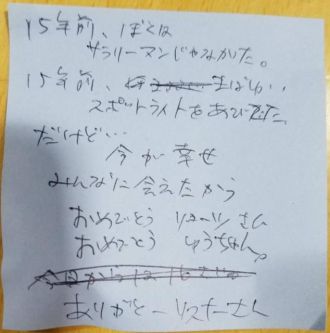 15年前、ぼくは
サラリーマンじゃなかった。
15年前、まばゆい
スポットライトをあびてた。
だけど…
今が幸せ
みんなに会えたから
おめでとう さん
おめでとう ゆうちゃん。
ありがとー リスナーさん